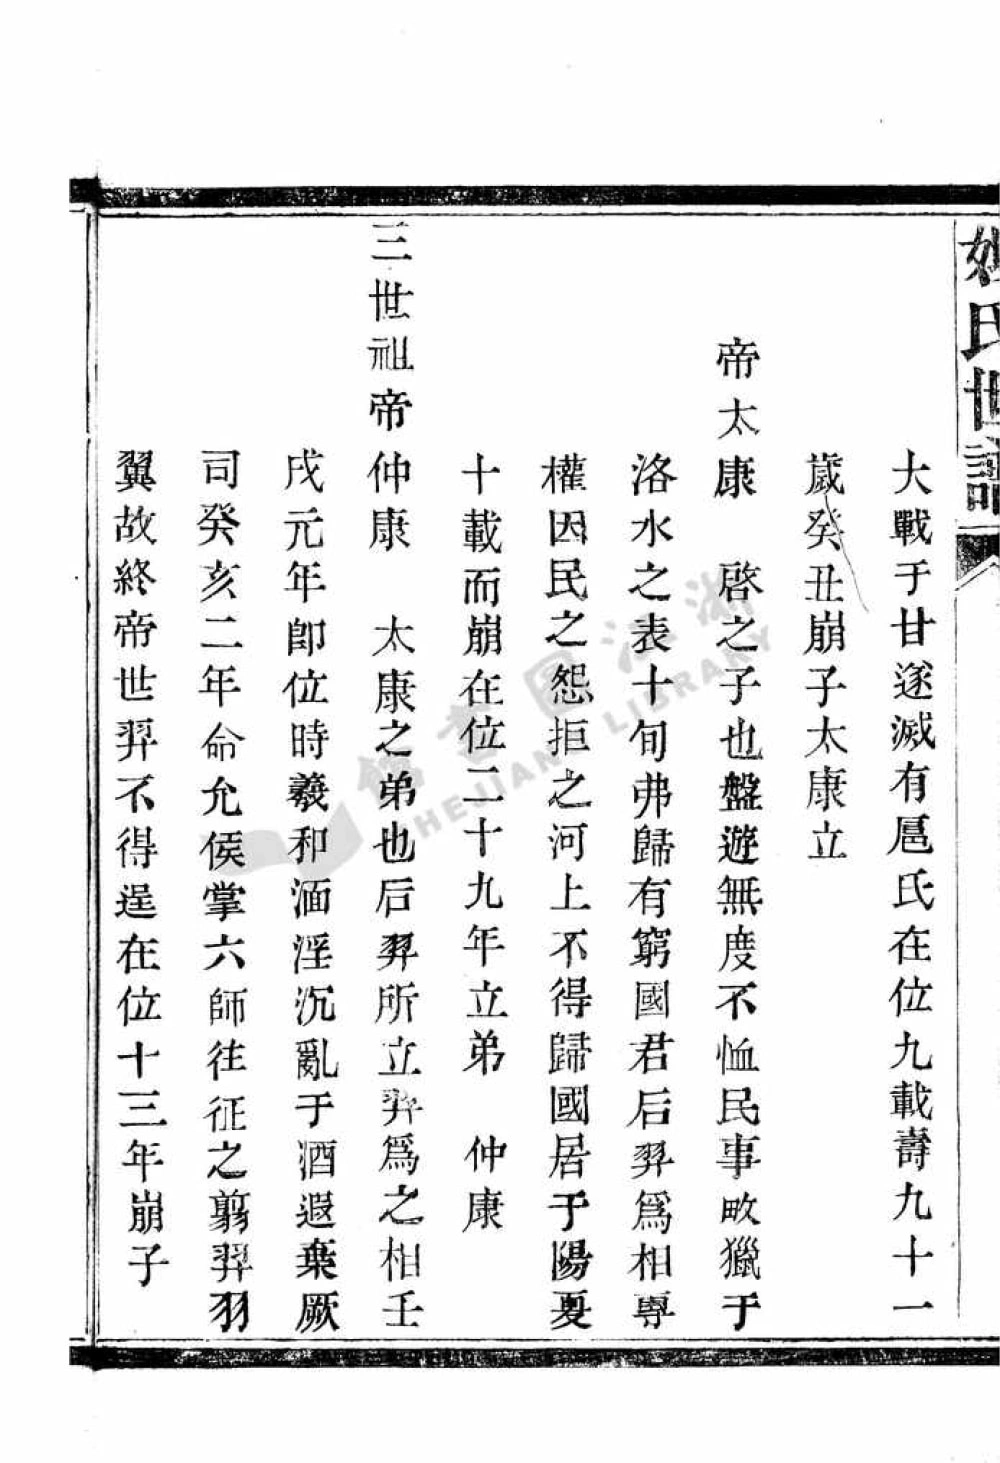 姒氏世譜
大戰于甘遂滅有扈氏在位九載壽九十一
歲癸丑崩子太康立
帝太康　啓之子也盤遊無度不恤民事畋獵于
洛水之表十旬弗歸有窮國君后羿爲相專
權因民之怨拒之河上不得歸國居于陽夏
十載而崩在位二十九年立弟　仲康
三世祖帝仲康　太康之弟也后羿所立羿爲之相壬
戌元年卽位時羲和湎淫沉亂于酒遐棄厥
司癸亥二年命允侯掌六師往征之翦羿羽
翼故終帝世羿不得逞在位十三年崩子
浙江圖書館
ZHEJIANG LIBRARY